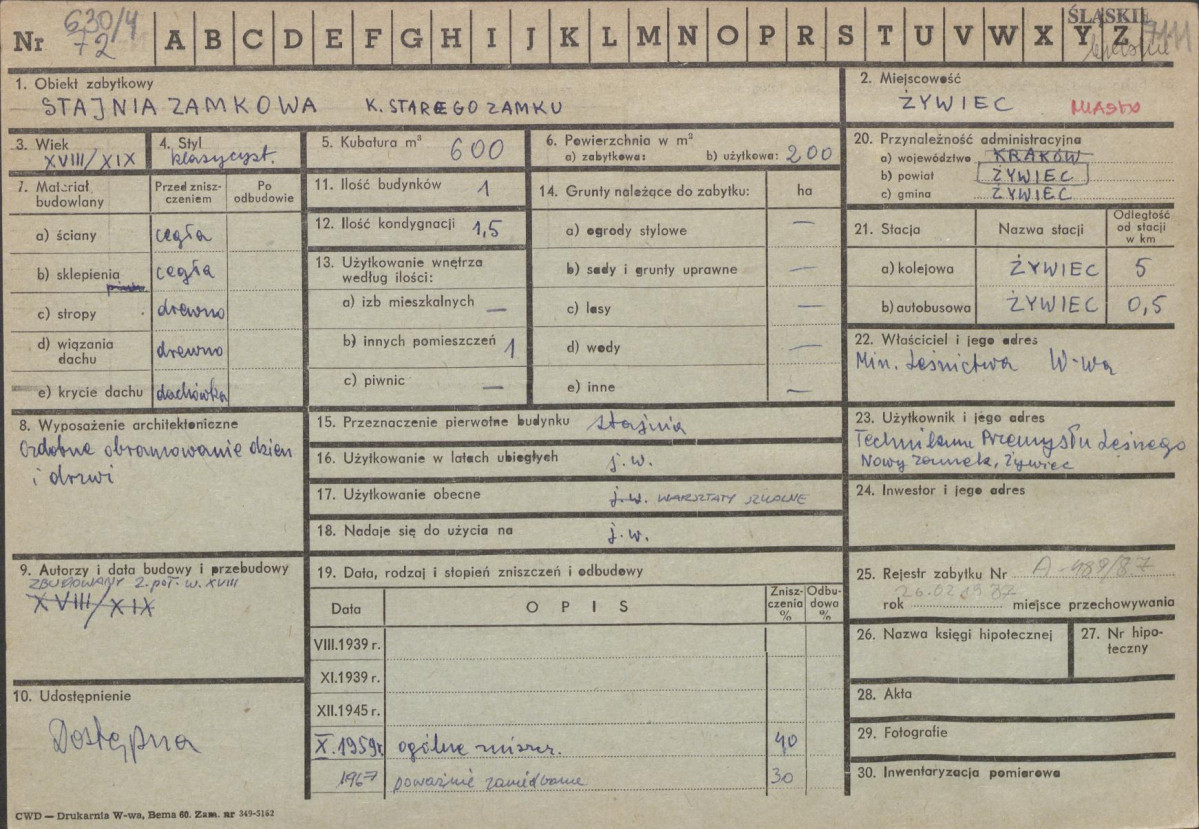 Nr 630/4
72
A B C D E F G H I J K L M N O P R S T U V W X Y Z
ŚLĄSKIE
1. Obiekt zabytkowy
STAJNIA ZAMKOWA K. STAREGO ZAMKU
2. Miejscowość
ŻYWIEC MIASTO
3. Wiek
XVIII/XIX
4. Styl
klasycyst.
5. Kubatura m³ 600
6. Powierzchnia w m²
a) zabytkowa: b) użytkowa: 200
20. Przynależność administracyjna
a) województwo KRAKÓW
b) powiat ŻYWIEC
c) gmina ŻYWIEC
7. Materiał budowlany
Przed zniszczeniem
Po odbudowie
a) ściany cegła
b) sklepienia cegła
c) stropy drewno
d) wiązania dachu drewno
e) krycie dachu dachówka
11. Ilość budynków 1
12. Ilość kondygnacji 1,5
13. Użytkowanie wnętrza
według ilości:
a) izb mieszkalnych —
b) innych pomieszczeń 1
c) piwnic —
14. Grunty należące do zabytku: ha
a) ogrody stylowe —
b) sady i grunty uprawne —
c) lasy —
d) wody —
e) inne —
21. Stacja Nazwa stacji Odległość od stacji w km
a) kolejowa ŻYWIEC 5
b) autobusowa ŻYWIEC 0,5
22. Właściciel i jego adres
Min. Leśnictwa W-wa
8. Wyposażenie architektoniczne
Ozdobne obramowanie okien
i drzwi
15. Przeznaczenie pierwotne budynku stajnia
16. Użytkowanie w latach ubiegłych j.w.
17. Użytkowanie obecne j.w. WARSZTATY SZKOLNE
18. Nadaje się do użycia na j.w.
23. Użytkownik i jego adres
Technikum Przemysłu Leśnego
Nowy Zamek, Żywiec
24. Inwestor i jego adres
9. Autorzy i data budowy i przebudowy
ZBUDOWANY 2. poł. w. XVIII
XVIII/XIX
19. Data, rodzaj i stopień zniszczeń i odbudowy
Data OPIS Zniszczenia % Odbudowa %
VIII.1939 r.
XI.1939 r.
XII.1945 r.
X.1959r. ogólne zniszcz. 40
1967 poważnie zaniedbane 30
25. Rejestr zabytku Nr A-489/87
26.02.1987
rok miejsce przechowywania
26. Nazwa księgi hipotecznej
27. Nr hipoteczny
10. Udostępnienie
Dostępna
28. Akta
29. Fotografie
30. Inwentaryzacja pomiarowa
CWD — Drukarnia W-wa, Bema 60. Zam. nr 349-5162